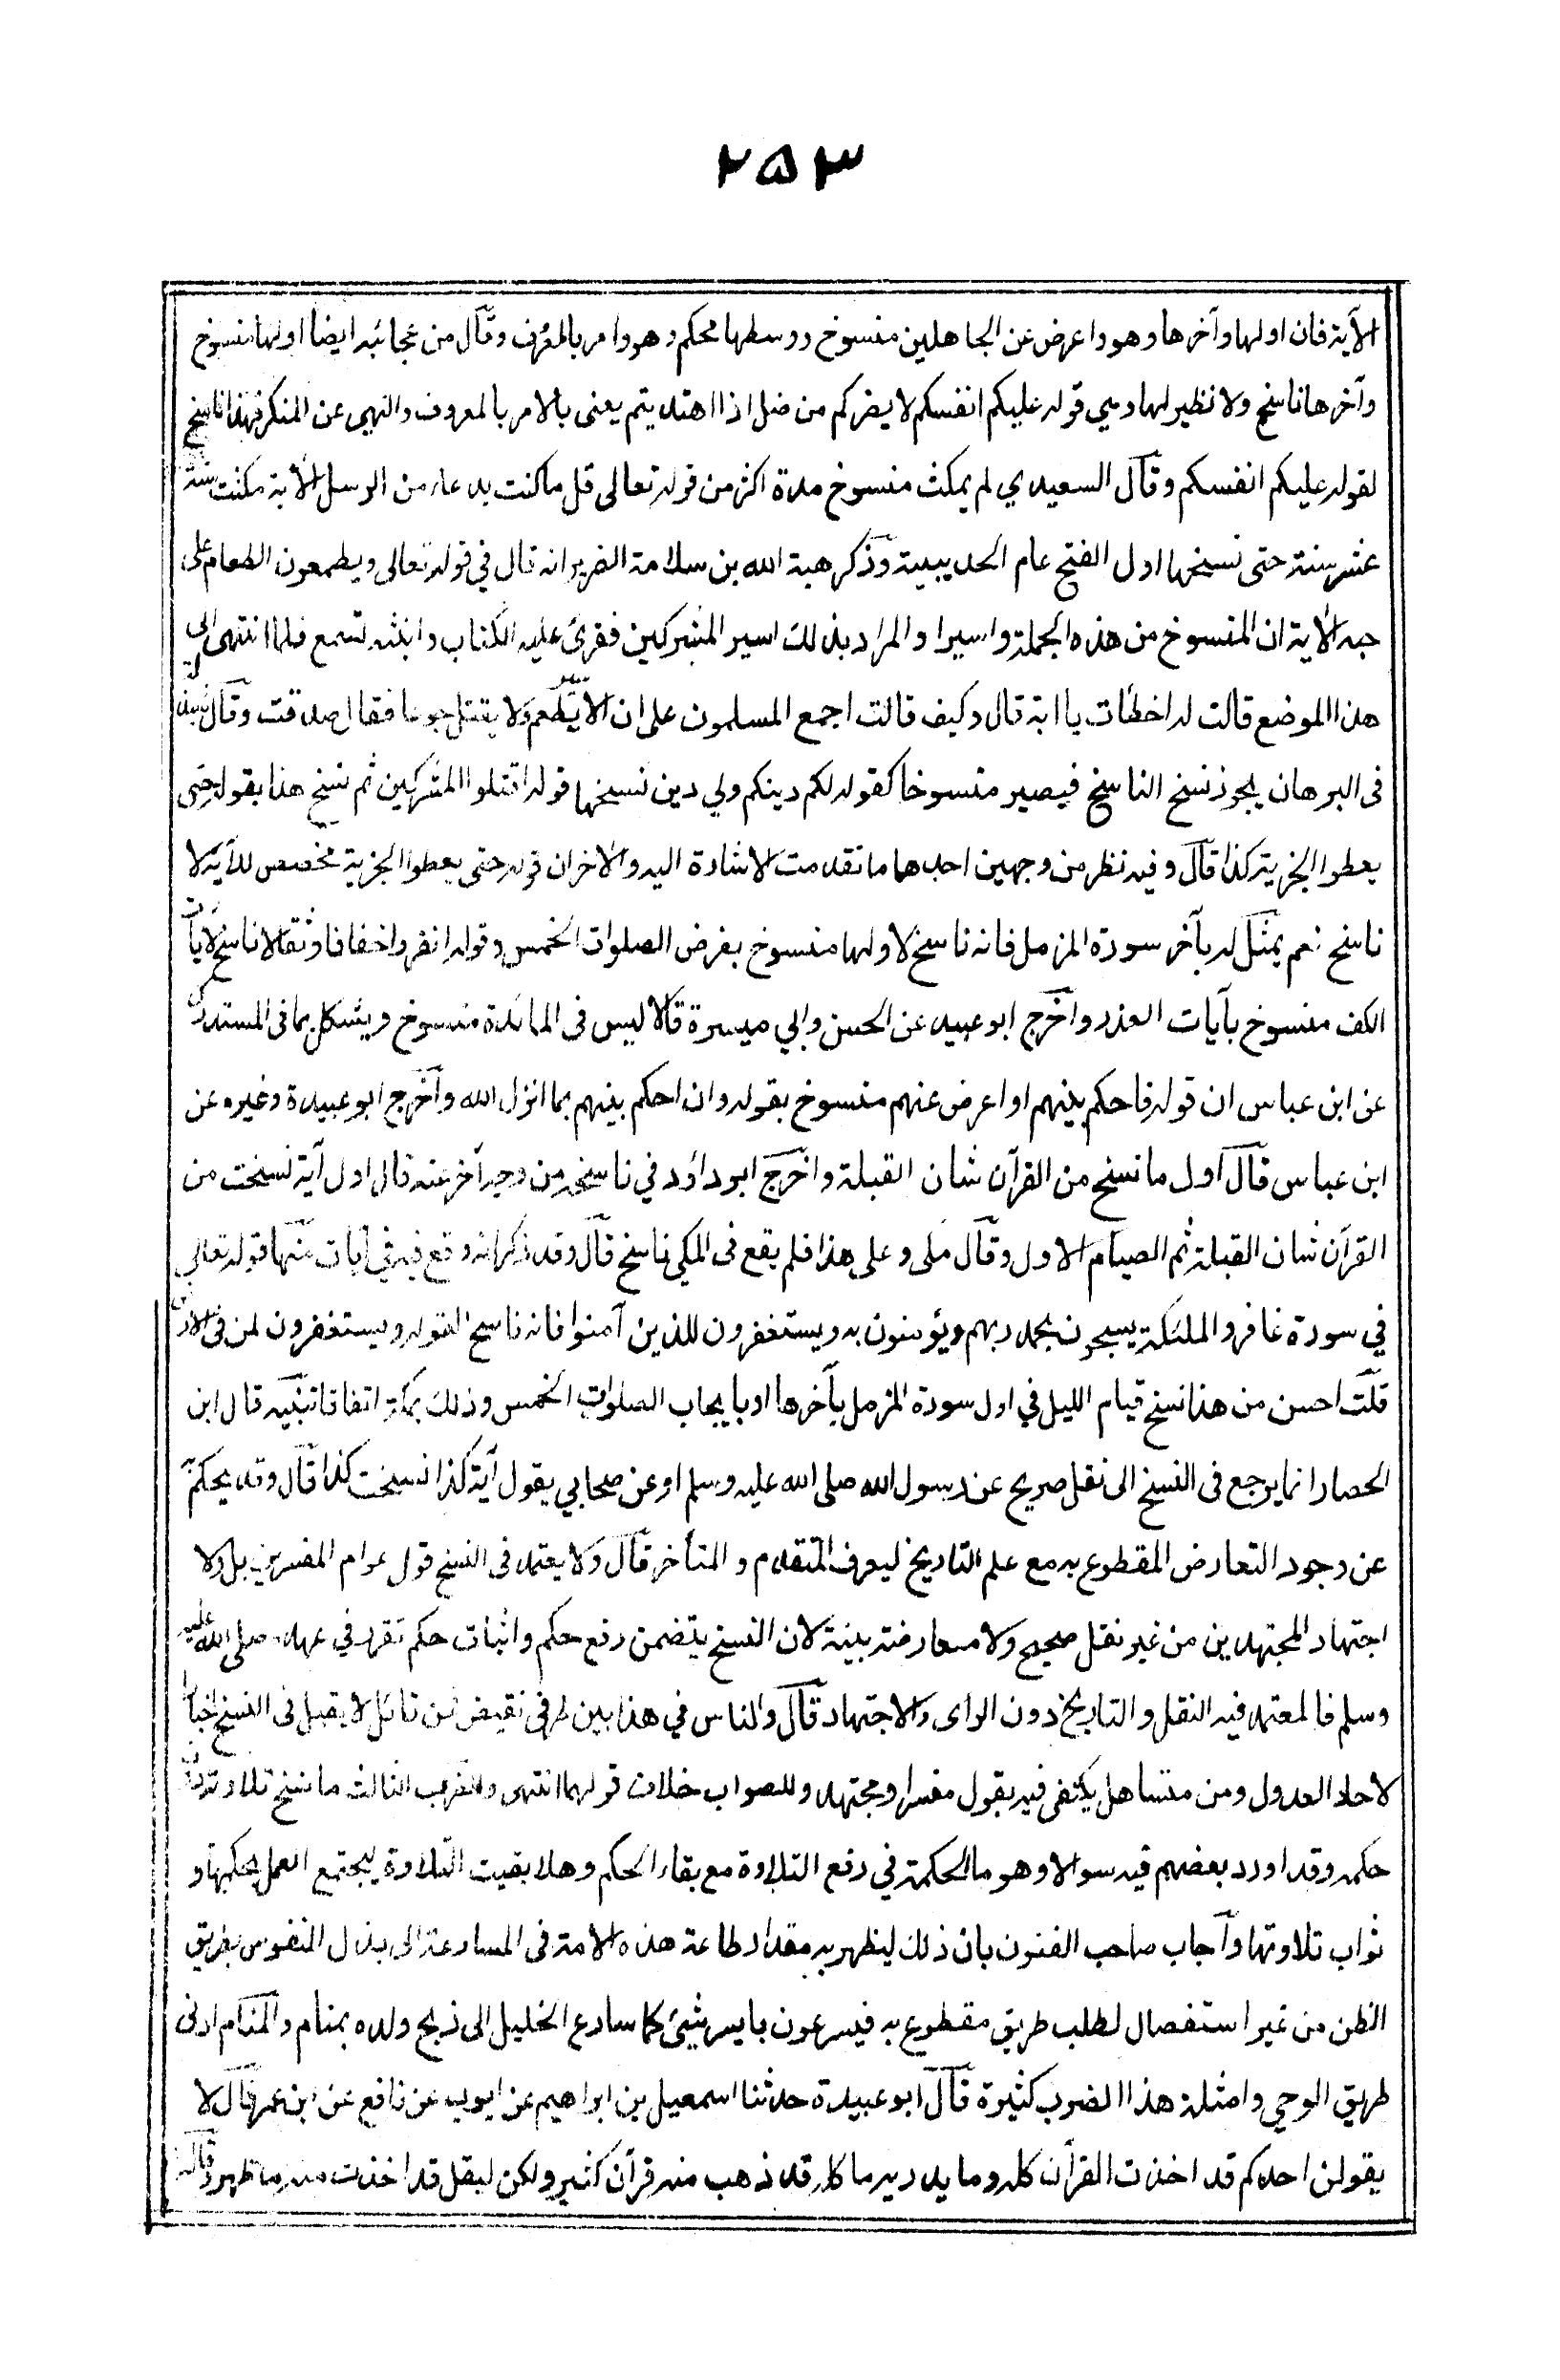 ۲۵۳
الآية فان اولها وآخرها وهو واعرض عن الجاهلين منسوخ ووسطها محكم وهو وامر بالعرف وقال من عجائبه ايضا اولها منسوخ
وآخرها ناسخ ولا نظير لها وهي قوله عليكم انفسكم لا يضركم من ضل اذا اهتديتم يعنى بالامر بالمعروف والنهي عن المنكر فهذا ناسخ
لقوله عليكم انفسكم وقال السعيدي لم يمكث منسوخ مدة اكثر من قوله تعالى قل ما كنت بدعا من الرسل الآية مكثت ستة
عشر سنة حتى نسخها اول الفتح عام الحديبية وذكر هبة الله بن سلامة الضرير انه قال في قوله تعالى ويطعمون الطعام على
حبه الآية ان المنسوخ من هذه الجملة واسيرا والمراد بذلك اسير المشركين فقرئ عليه الكتاب وابنته تسمع فلما انتهى الى
هذا الموضع قالت له اخطأت يا ابة قال وكيف قالت اجمع المسلمون على ان الاسير يطعم ولا يقتل جوعا فقال صدقت وقال شيذلة
فى البرهان يجوز نسخ الناسخ فيصير منسوخا كقوله لكم دينكم ولي دين نسخها قوله اقتلوا المشركين ثم نسخ هذا بقوله حتى
يعطوا الجزية كذا قال وفيه نظر من وجهين احدهما ما تقدمت الاشارة اليه والآخر ان قوله حتى يعطوا الجزية مخصص للآية لا
ناسخ نعم يمثل له بآخر سورة المزمل فانه ناسخ لاولها منسوخ بفرض الصلوات الخمس وقوله انفروا خفافا وثقالا ناسخ لآيات
الكف منسوخ بآيات العذر واخرج ابو عبيد عن الحسن وابي ميسرة قالا ليس فى المائدة منسوخ ويشكل بما فى المستدرك
عن ابن عباس ان قوله فاحكم بينهم او اعرض عنهم منسوخ بقوله وان احكم بينهم بما انزل الله واخرج ابو عبيدة وغيره عن
ابن عباس قال اول ما نسخ من القرآن شان القبلة واخرج ابو داؤد في ناسخه من وجه آخر عنه قال اول آية نسخت من
القرآن شان القبلة ثم الصيام الاول وقال مكى وعلى هذا فلم يقع فى المكي ناسخ قال وقد ذكر انه وقع فيه في آيات منها قوله تعالى
في سورة غافر والملئكة يسبحون بحمد ربهم ويؤمنون به ويستغفرون للذين آمنوا فانه ناسخ لقوله ويستغفرون لمن فى الارض
قلت احسن من هذا نسخ قيام الليل في اول سورة المزمل بآخرها او بايجاب الصلوات الخمس وذلك بمكة اتفاقا تنبيه قال ابن
الحصار انما يرجع فى النسخ الى نقل صريح عن رسول الله صلى الله عليه وسلم او عن صحابي يقول آية كذا نسخت كذا قال وقد يحكم به
عن وجود التعارض المقطوع به مع علم التاريخ ليعرف المتقدم و المتأخر قال ولا يعتمد فى النسخ قول عوام المفسرين بل ولا
اجتهاد المجتهدين من غير نقل صحيح ولا معارضة بينة لان النسخ يتضمن رفع حكم واثبات حكم تقرر في عهده صلى الله عليه
وسلم فالمعتمد فيه النقل و التاريخ دون الراى والاجتهاد قال والناس في هذا بين طرفي نقيض فمن قائل لا يقبل فى النسخ اخبار
لاحاد العدول ومن متساهل يكتفى فيه بقول مفسر او مجتهد والصواب خلاف قولهما انتهى والضرب الثالث ما نسخ تلاوته دون
حكمه وقد اورد بعضهم فيه سوالا وهو ما الحكمة في رفع التلاوة مع بقاء الحكم وهلا بقيت التلاوة ليجتمع العمل بحكمها و
ثواب تلاوتها واجاب صاحب الفنون بان ذلك ليظهر به مقدار طاعة هذه الامة فى المسارعة الى بذل النفوس بطريق
الظن من غير استفصال لطلب طريق مقطوع به فيسرعون بايسر شيئ كما سارع الخليل الى ذبح ولده بمنام والمنام ادنى
طريق الوحي وامثلة هذا الضرب كثيرة قال ابو عبيدة حدثنا اسمعيل بن ابراهيم عن ايوب عن نافع عن ابن عمر قال لا
يقولن احدكم قد اخذت القرآن كله وما يدريه ما كله قد ذهب منه قرآن كثير ولكن ليقل قد اخذت منه ما ظهر وقال